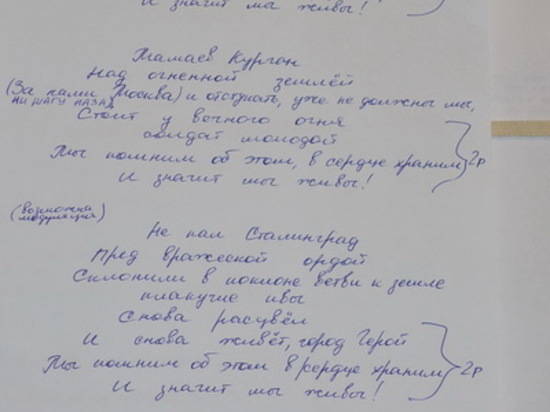 И значит мы живы!
Мамаев Курган
Над огненной землёй
(За нами Москва) и отступать, уже не должны мы,
ни шагу назад
Стоит у вечного огня
солдат молодой
Мы помним об этом, в сердце храним 2р
И значит мы живы!
(возможна модуляция)
Не пал Сталинград
Пред вражеской ордой
Склонили в поклоне ветви к земле
плакучие ивы
Снова расцвёл
И снова живёт, город Герой
Мы помним об этом в сердце храним 2р
И значит мы живы!